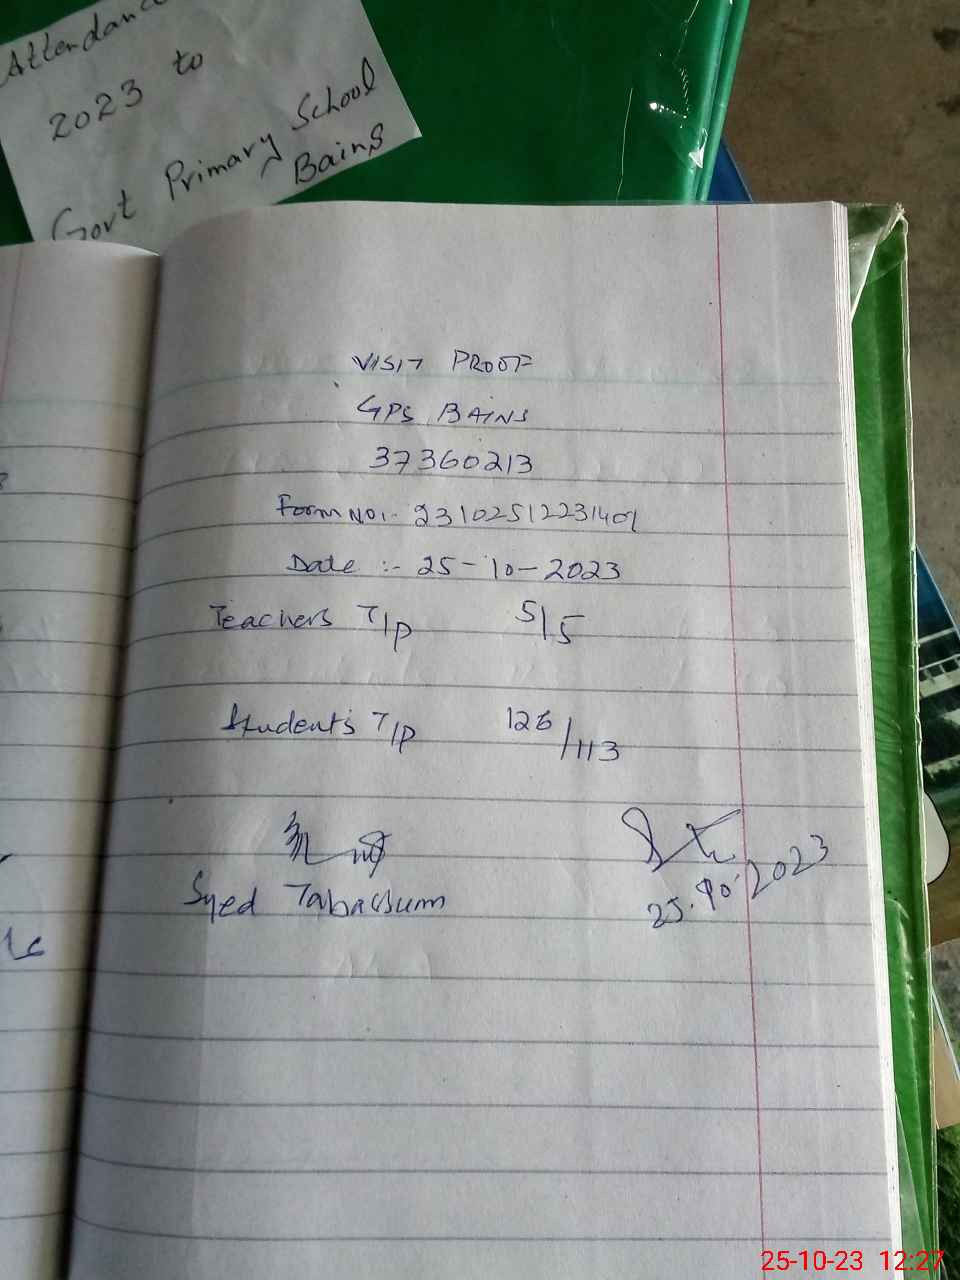 Attendance
2023 to
Govt Primary School
Bains
VISIT PROOF
GPS BAINS
37360213
Form No:- 231025122231401
Date :- 25-10-2023
Teachers T/P 5/5
Students T/P 126/113
Syed Tabassum
25.10.2023
25-10-23 12:27